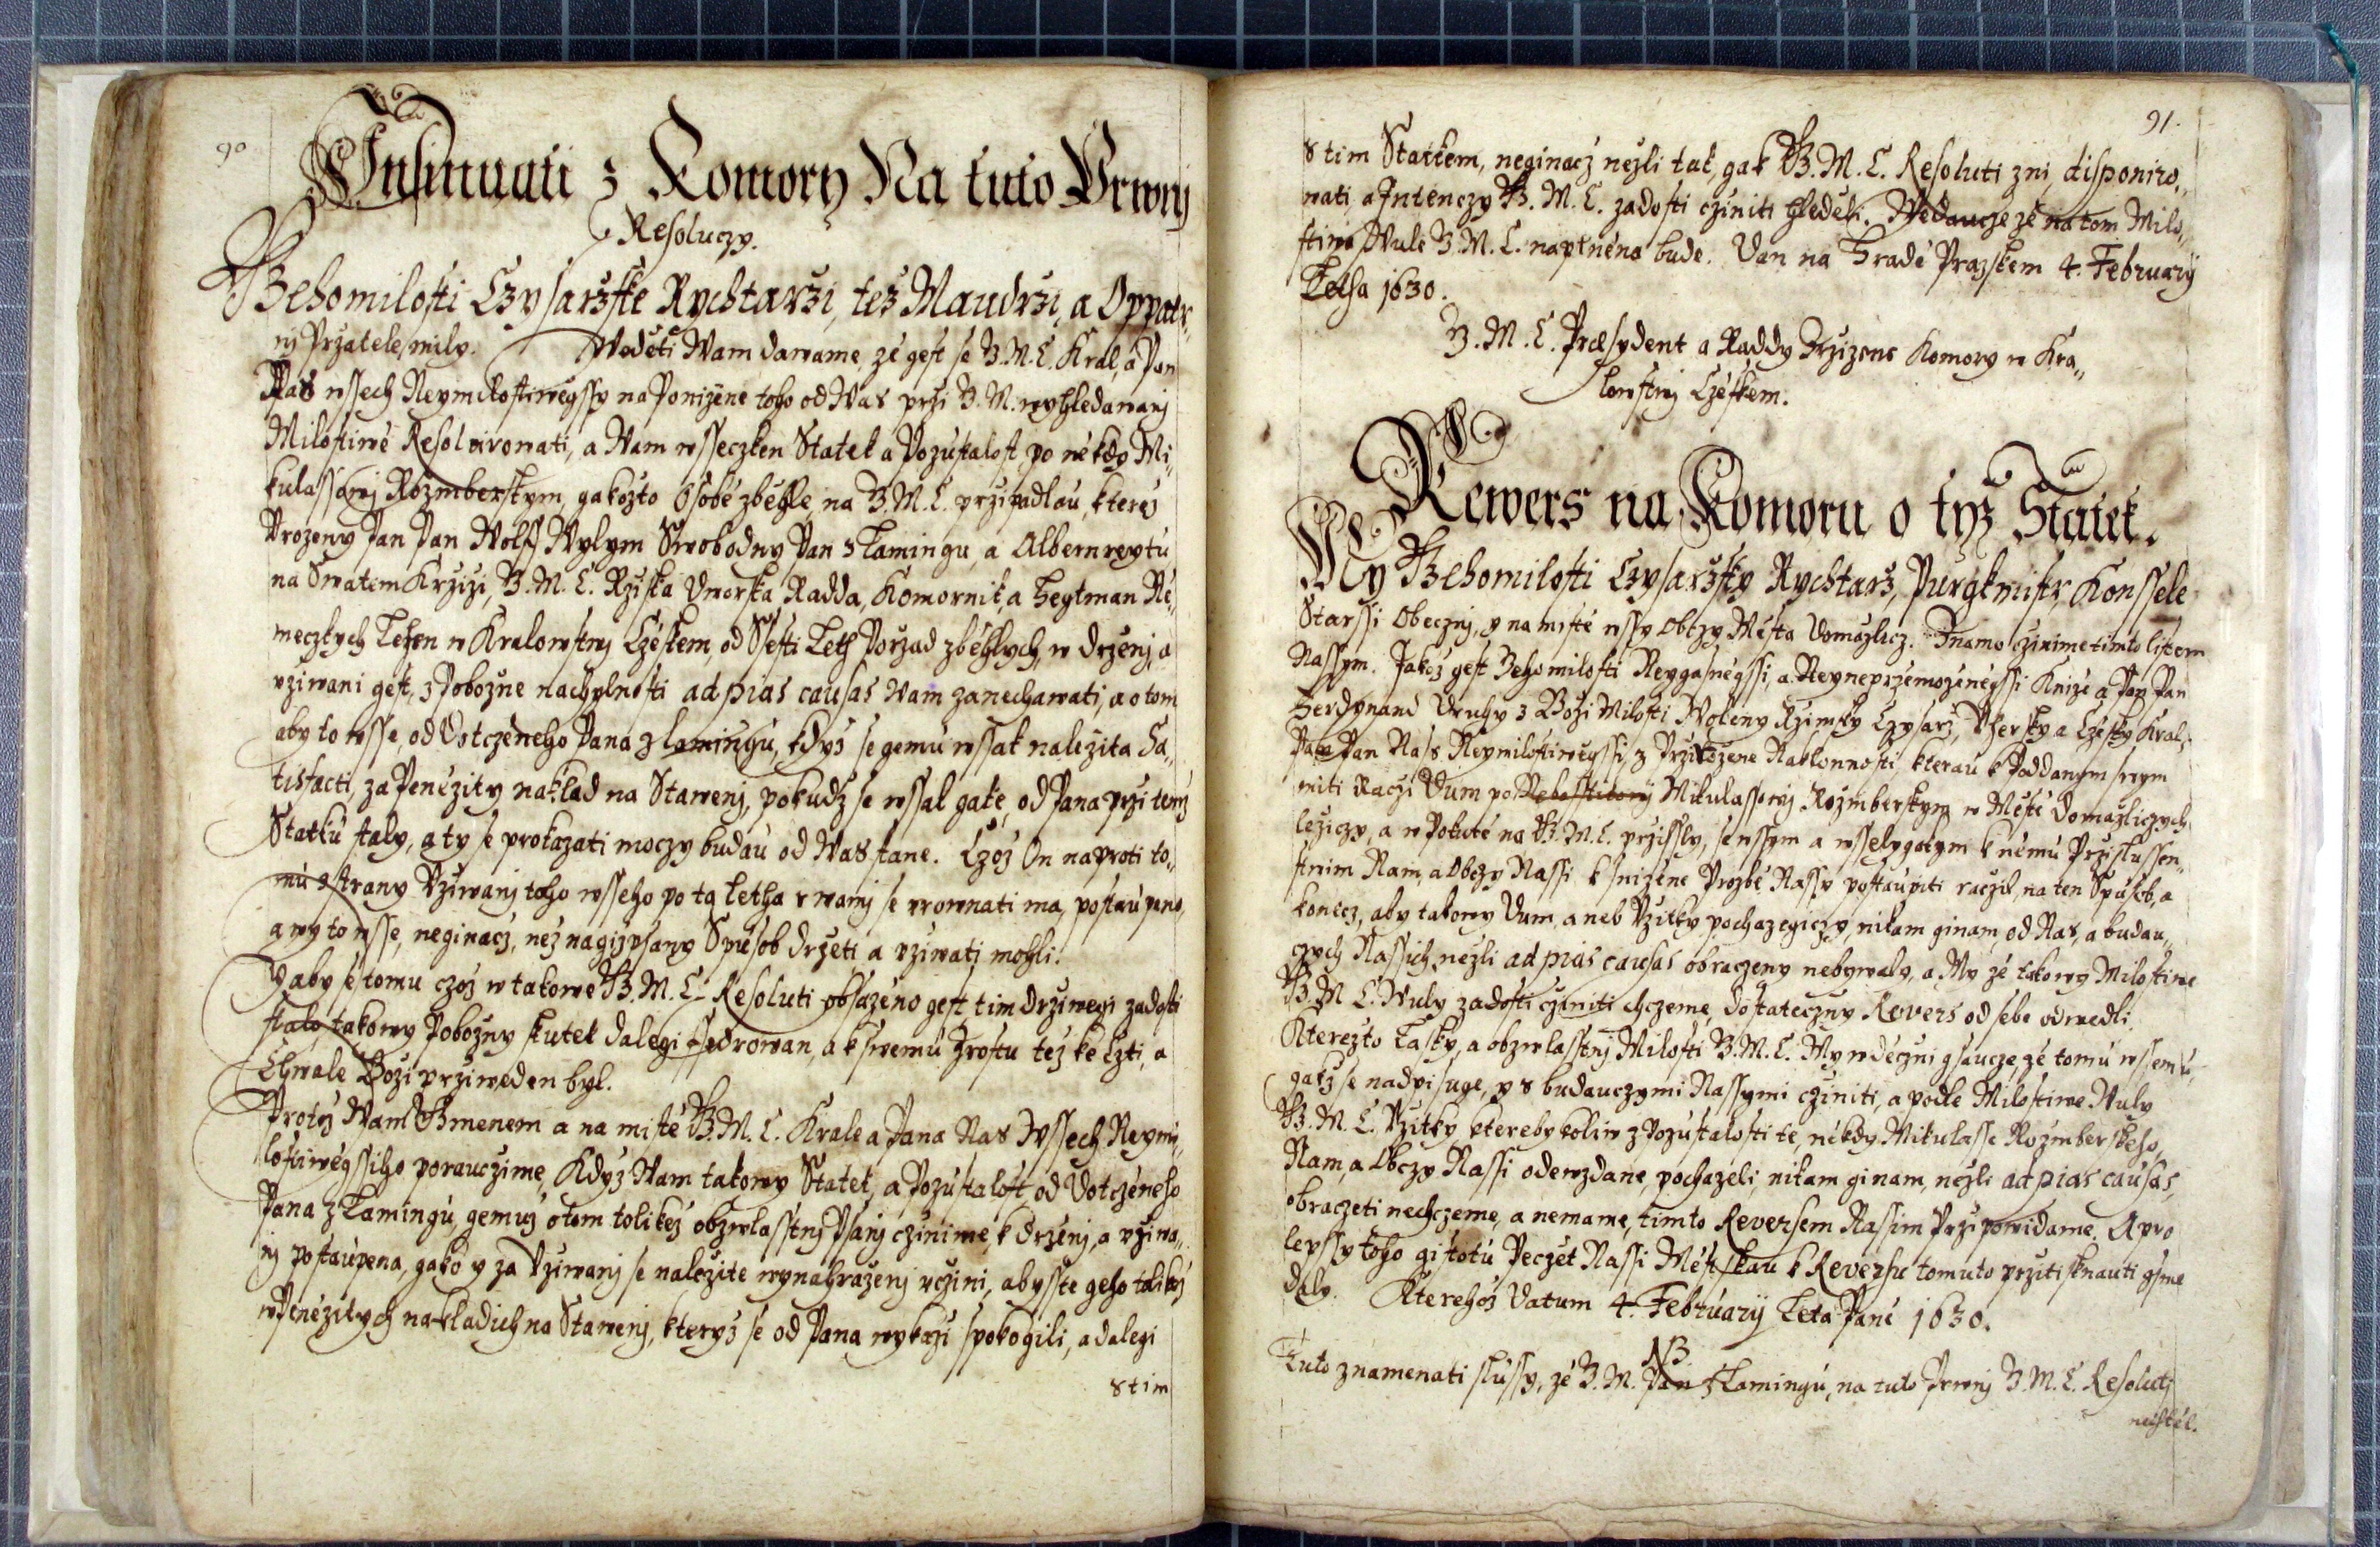 90
Insinuati z Komory Na tuto Prwnj
Resoluczy.
Gehomilosti Czysarzske Rychtarzi, tez Maudrzi, a Oppatr„
nj Przatele mily. Wedeti Wam dawame, ze gest se G. M. C. Kral, a Pan
Nas wssech Neymilostiwegssy na Ponizene toho od Was przi G. M. wyhledawanj
Milostiwe Resolwirowati, a Wam wsseczken Statek a Pozustalost, po nekdy Mi„
kulassowj Rozmberskym, gakozto Osobe zbehle, na G. M. C. przipadlau, kterez
Urozeny Pan Pan Wolff Wylym Swobodny Pan z Lamingu, a Albernreytu
na Swatem Krzizi, G. M. C. Rziska Dworska Radda, Komornik, a Hegtman Ne„
meczkych Lehen w Kralowstwj Czeskem, od Ssesti Leth Porzad zbehlych, w drzenj, a
vziwani gest, z Pobozne nachylnosti ad pias causas Wam zanechawati, a o tom
aby to wsse, od Dotczeneho Pana z Lamingu, kdyz se gemu wssak nalezita Sa„
tisfacti, za Penezity naklad na Stawenj, pokudz se wssak gake, od Pana przi temz
Statku staly, a ty se prokazati moczy budau od Was stane. Czoz On naproti to„
mu z strany Vziwanj toho wsseho po ta letha rwanj se wrownati ma, postaupeno,
a wy to wsse, neginacz, nez nagizpsany Spusob drzeti a vziwati mohli.
Y aby se tomu czoz w takowe G. M. C. Resoluti obsazeno gest tim drziwegi zadosti
stalo, takowy Pobozny skutek dalegi ffedrowan, a k swemu Zrostu tez ke Czti, a
Chwale Bozi prziweden byl.
Protoz Wam Gmenem a na miste G. M. C. Krale a Pana Nas Wssech Neymi„
lostiwegssiho porauczime, Kdyz Wam takowy Statek, a Pozustalost, od Dotczeneho
Pana z Lamingu, gemuz o tom tolikez obzwlasstnj Psanj czinime, k drzenj, a vziwa„
nj postaupena, gako y za Vziwanj se nalezite wynahrazenj vczini, abysste geho tolikez
w Penezitych nakladich na Stawenj, kteryz se od Pana wykazi spokogili, a dalegi
s tim
91.
s tim Statkem, neginacz nezli tak, gak G. M. C. Resoluti zni, disponiro„
wati, a Intenczy G. M. C. zadosti cziniti hledeli. Wedaucze ze na tom Milo„
stiwa Wule G. M. C. naplnena bude. Dan na Hrade Prazskem 4. February
Letha 1630.
G. M. C. Præsydent a Raddy Zrzizene Komory w Kra„
lowstwj Czeskem.
Rewers na Komoru o tyz Statek.
My Gehomilosti Czysarzsky Rychtarz, Purgkmistr, Konssele
Starssi Obecznj, y na miste wssy Obczy Mesta Domazlicz. Znamo czinime timto listem
Nassym. Jakoz gest Gehomilosti Neygasnegssi, a Neyneprzemozenegssi Knize a Pan Pan
Ferdynand Druhy z Bozi Milosti Woleny Rzimsky Czysarz, Vhersky a Czesky Kral,
Pan Pan Nass Neymilostiwegssi, z Przirozene Naklonnosti, kterau k Poddanym swym
miti Raczi Dum po Mikulassowj Rozmberskym w Meste Domazliczych
leziczy, a w Pokute na G. M. C. przissly, se wssym a wsselygakym k nemu Przislussen„
stwim Nam, a Obczy Nassi k snizene Prozbe Nassy postaupiti raczil, na ten Spusob, a
konecz, aby takowy Dum, a neb Vzitky pochazegiczy, nikam ginam, od Nas, a budau„
czych Nassich, nezli ad pias causas obraczeny nebywaly, a My ze takowy Milostiwe
G. M. C. Wuly zadosti cziniti chczeme, dostateczny Revers od sebe odwedli.
Kterezto Lasky, a obzwlasstnj Milosti G. M. C. My wdecznj gsaucze, ze tomu wssemu,
gakz se nadpisuge, y s budauczymi Nassymi cziniti, a podle Milostiwe Wuly
G. M. C. Vzitky kterebykoliw z Pozustalosti te, nekdy Mikulasse Rozmberskeho,
Nam, a Obczy Nassi odewzdane, pochazeli, nikam ginam, nezli ad pias causas,
obraczeti nechczeme, a nemame, timto Reversem Nassim Przipowidame. A pro
lepssy toho gistotu Peczet Nassi Mestskau k Reversu tomuto przitisknauti gsme
daly. Kterehoz Datum 4. Februarij Leta Pane 1630.
NB
Tuto znamenati slussy, ze G. M. Pan z Lamingu, na tuto Prwnj G. M. C. Resoluti
nechtel.